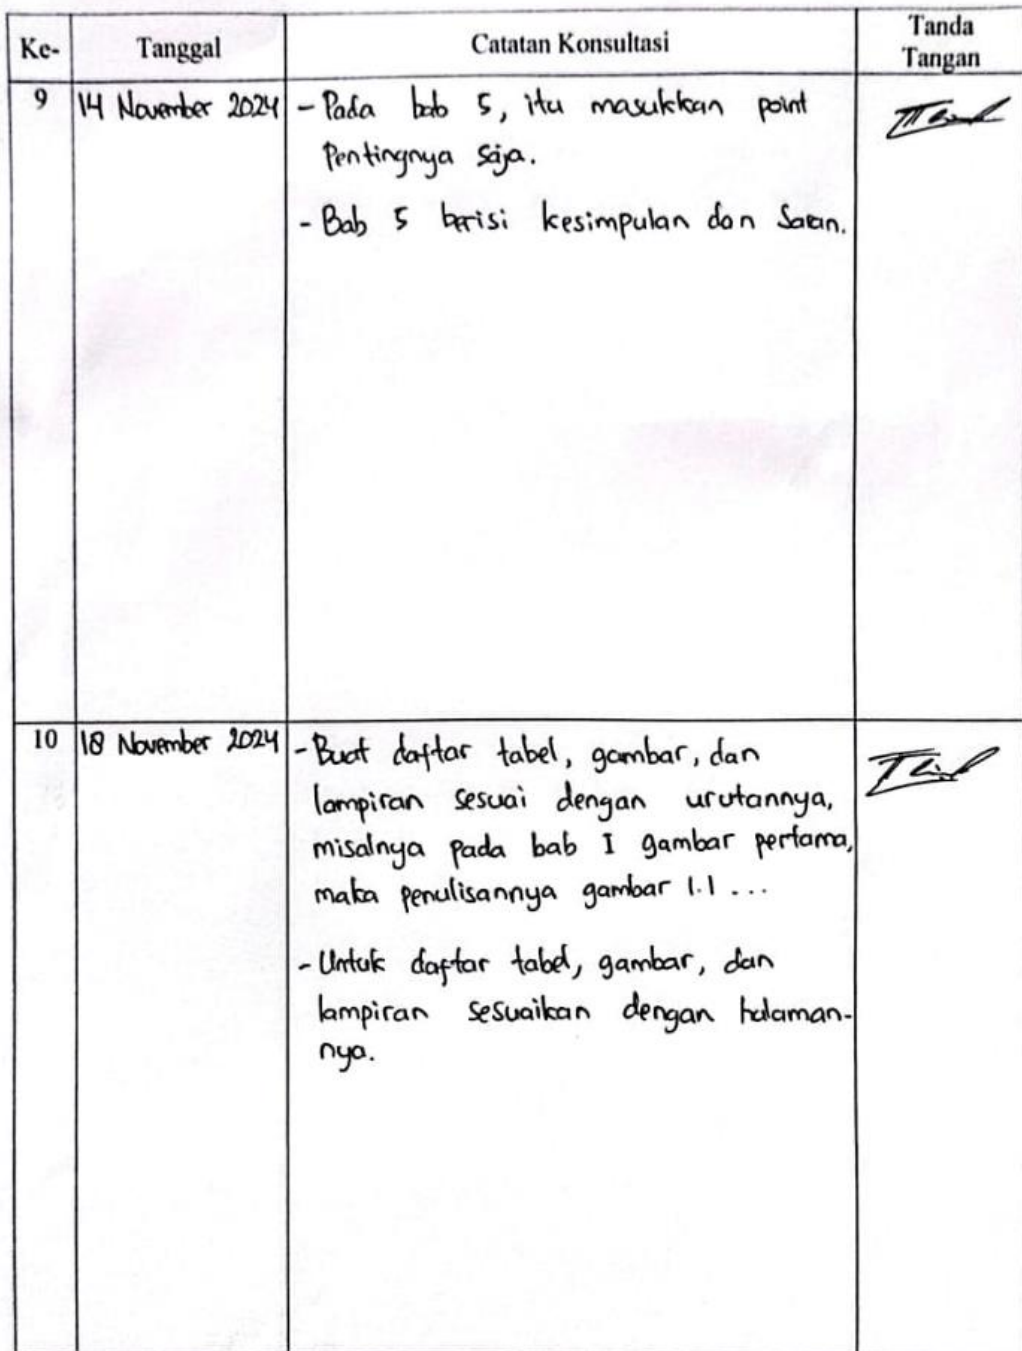 Ke- Tanggal Catatan Konsultasi Tanda Tangan
9 14 November 2024 - Pada bab 5, itu masukkan point
Pentingnya saja.
- Bab 5 berisi kesimpulan dan Saran.
10 18 November 2024 - Buat daftar tabel, gambar, dan
lampiran sesuai dengan urutannya,
misalnya pada bab I gambar pertama,
maka penulisannya gambar 1.1 ...
- Untuk daftar tabel, gambar, dan
lampiran sesuaikan dengan halaman-
nya.